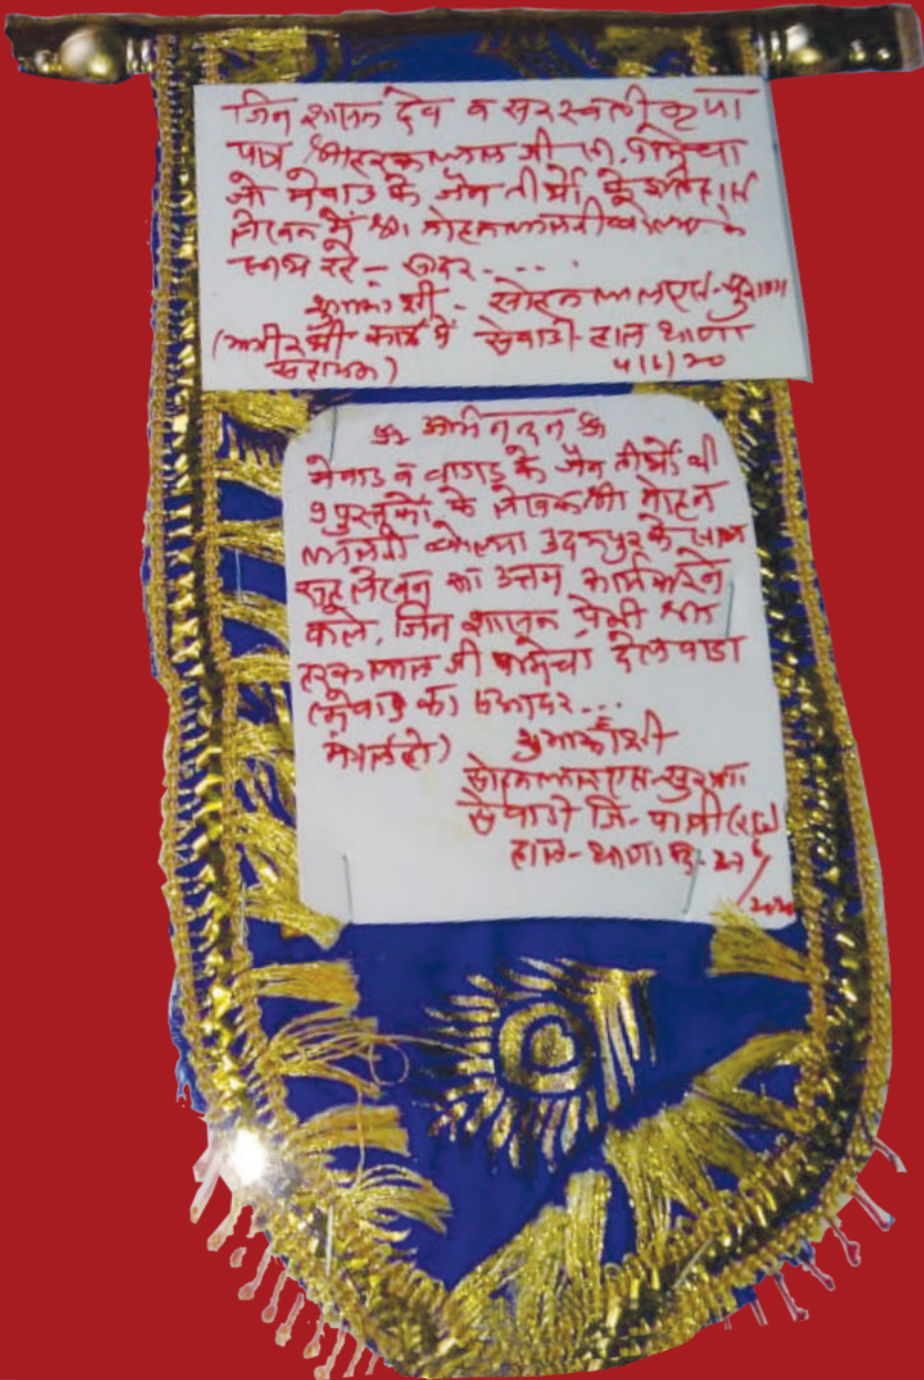 जिन शासन देव व सरस्वती कृपा
पात्र जी
जो मेवाड के जैन तीर्थो के इतिहास
लेखन में के
साथ रहे - सादर - - - .
शुभाकांक्षी - सोहनलाल एस. सुराणा
कार्य में सेवाडी - हाल थाणा
सहायक)
卐 अभिनन्दन 卐
मेवाड व वागड के जैन तीर्थो की
9 पुस्तकों के लेखक श्री मोहन
लालजी बोल्या उदयपुर के साथ
रह लेखन का उत्तम कार्य करने
वाले, जिन शासन प्रेमी
हरकलालजी पामेचा देलवाडा
(मेवाड का सादर - - -
मंगल हो) शुभाकांक्षी
सोहनलाल एस. सुराणा
सेवाडी जि - पाली (राज)
हाल - थाणा
2020